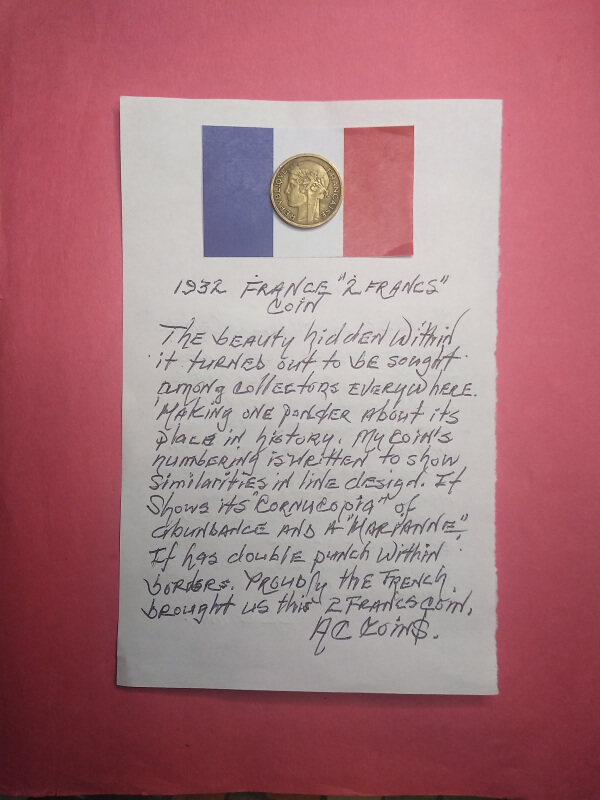 REPUBLIQUE FRANÇAISE
1932 FRANCE "2 FRANCS"
COIN
The beauty hidden within
it turned out to be sought
among collectors everywhere.
Making one ponder about its
place in history. My coin's
numbering is written to show
similarities in line design. It
shows its "Cornucopia" of
abundance and a "Marianne".
It has double punch within
borders. Proudly the French
brought us this 2 Francs coin.
AC Coin$.